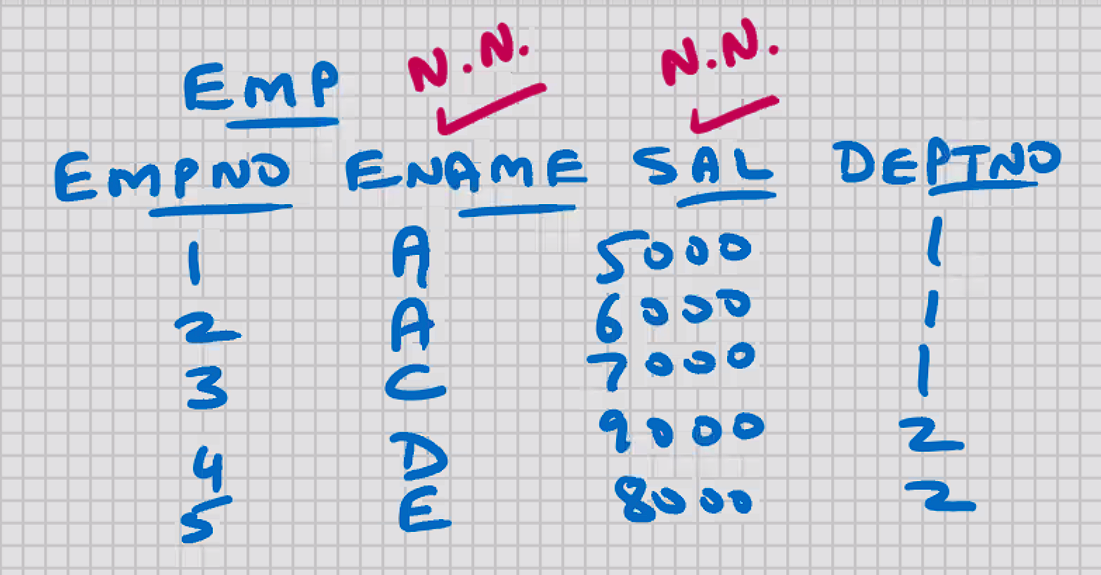 EMP N.N. N.N.
EMPNO ENAME SAL DEPTNO
1 A 5000 1
2 A 6000 1
3 C 7000 1
4 D 9000 2
5 E 8000 2